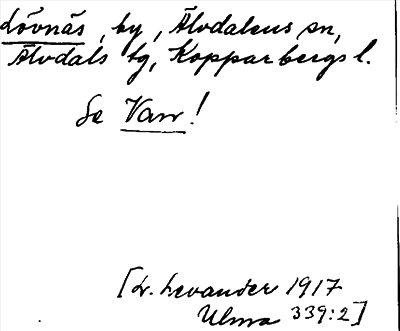 Lövnäs, by, Älvdalens sn,
Älvdals tg, Kopparbergs l.
Se Varv!
[L. Levander 1917
Ulma 339:2]